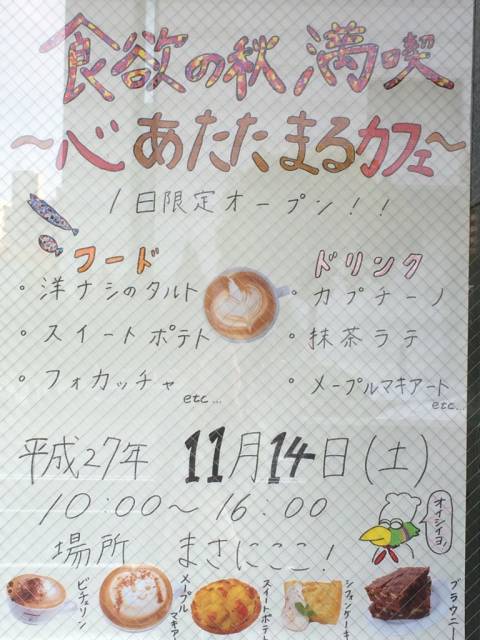 食欲の秋 満喫
～心 あたたまるカフェ～
1日限定オープン！！
フード
・洋ナシのタルト
・スイートポテト
・フォカッチャ
etc...
ドリンク
・カプチーノ
・抹茶ラテ
・メープルマキアート
etc...
平成27年 11月14日(土)
10:00～16:00
場所 まさにここ！
オイシイヨ
ビチェリーン
メープルマキアート
スイートポテト
シフォンケーキ
ブラウニー